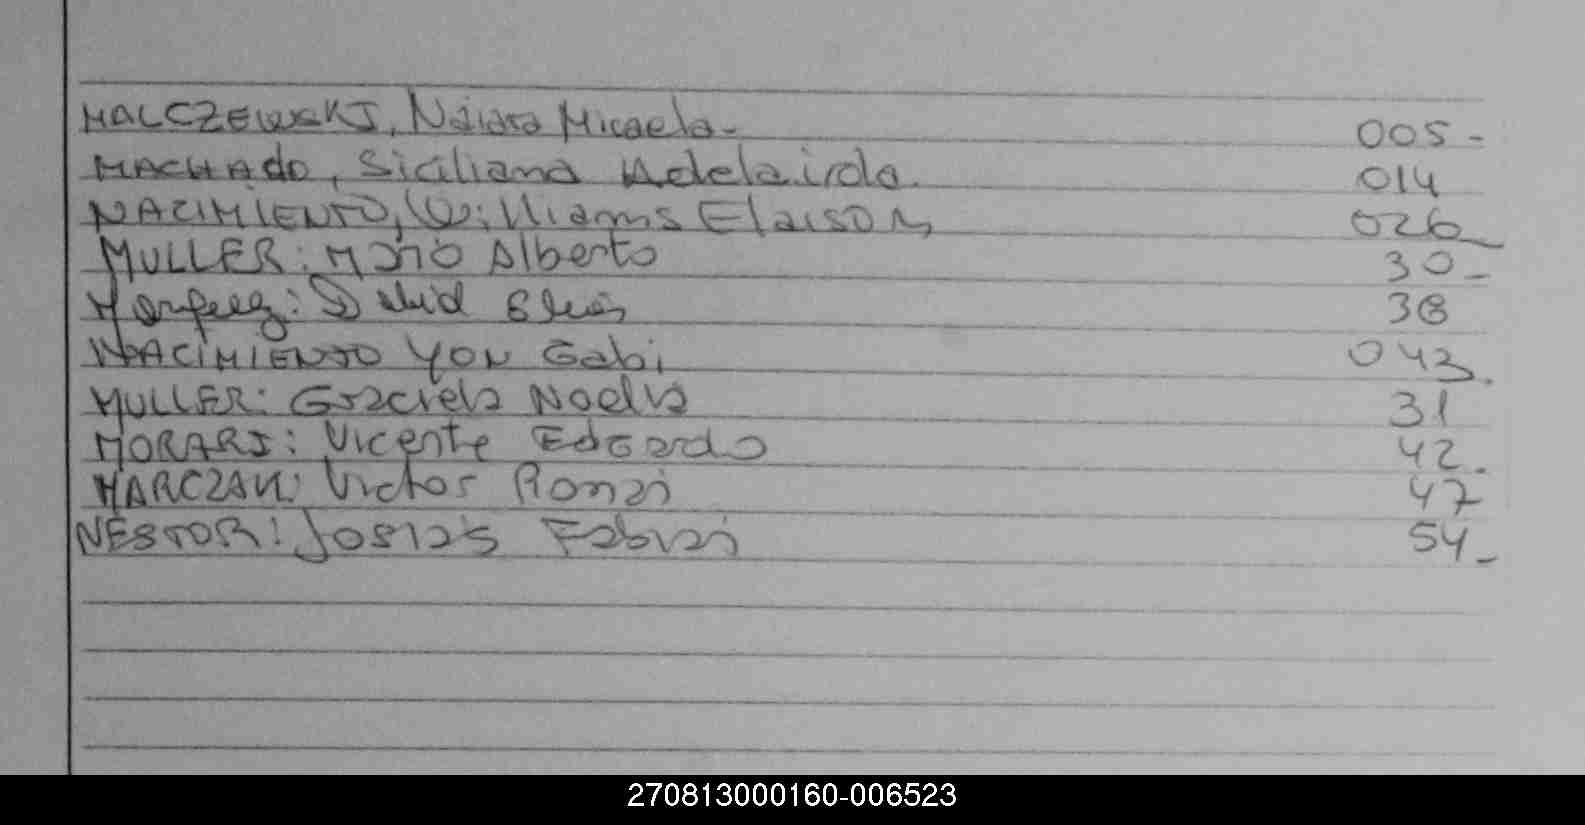 MALCZEWSKI, Naiara Micaela- 005-
MACHAdo, Siciliana Adelaida. 014
NACIMIENTO, Williams Elaison 026-
MULLER: Mario Alberto 30-
David 38
NACIMIENTO YON Gabi 043.
MULLER: Graciela Noelia 31
MORARI: Vicente Edgardo 42.
MARCZAK: Victor Ronai 47
NESTOR: Josias Fabian 54-
270813000160-006523